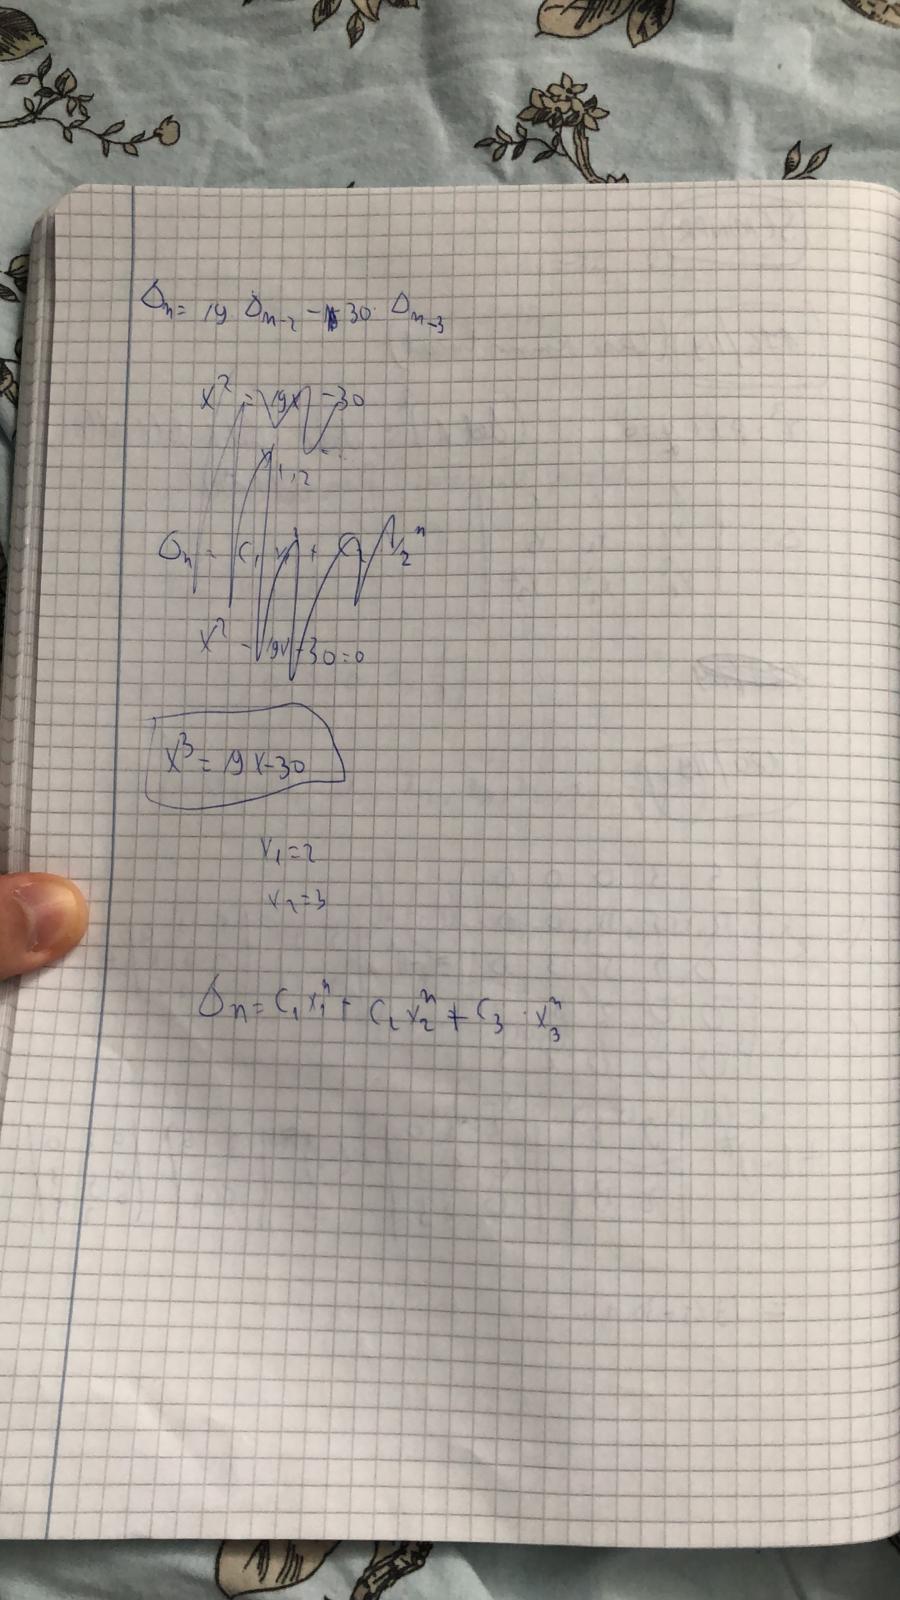 Δn = 19 Δn-2 - 30 · Δn-3
x² = 19x - 30
1,2
Δn = C1
x² - 19x - 30 = 0
x³ = 19x - 30
x1 = 2
x2 = 3
Δn = C1 x1^n + C2 x2^n + C3 · x3^n